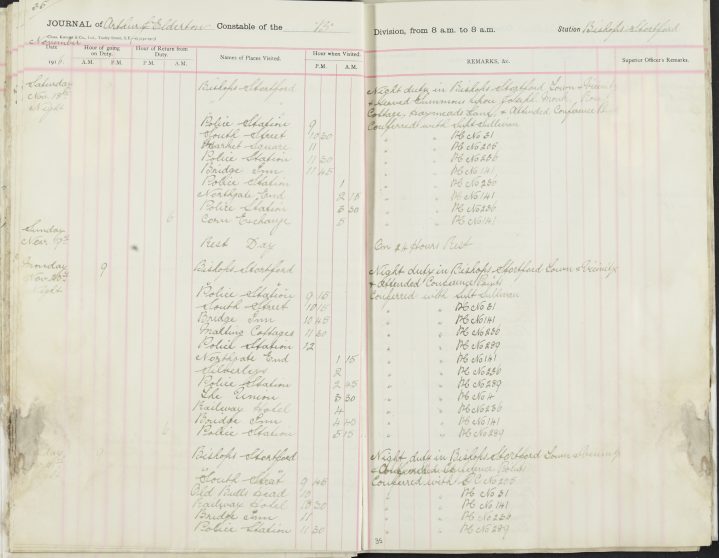 36
JOURNAL of Arthur S. Elderton Constable of the "B" Division, from 8 a.m. to 8 a.m. Station Bishops Stortford
November
Date Hour of going on Duty. Hour of Return from Duty. Names of Places Visited. Hour when Visited. REMARKS, &c. Superior Officer's Remarks.
191 A.M. P.M. A.M. P.M. P.M. A.M.
Saturday Bishops Stortford Night duty in Bishops Stortford Town & Vicinity
Nov. 18th & Served Summons
Night Cottage, Haymeads Lane, & Attended Conference
Police Station 9 Conferred with Supt Sullivan
South Street 10 30 " " PC No 31
Market Square 11 " " PC No 205
Police Station 11 30 " " PC No 236
Bridge Inn 11 45 " " PC No 141
Police Station 1 " " PC No 236
Northgate End 2 15 " " PC No 141
Police Station 3 30 " " PC No 236
6 Corn Exchange 5 " " PC No 141
Sunday
Nov. 19th Rest Day On 24 Hours Rest
Monday 9 Bishops Stortford Night duty in Bishops Stortford Town & Vicinity
Nov 20th & Attended Conference
Night
Police Station 9 15 Conferred with Supt Sullivan
South Street 10 15 " " PC No 31
Bridge Inn 10 45 " " PC No 141
Malting Cottages 11 30 " " PC No 236
Police Station 12 " " PC No 289
Northgate End 1 15 " " PC No 141
Silverleys 2 " " PC No 236
Police Station 2 45 " " PC No 289
The Union 3 30 " " PC No 4
Railway Hotel 4 " " PC No 236
Bridge Inn 4 40 " " PC No 141
6 Police Station 5 15 " " PC No 289
Bishops Stortford Night duty in Bishops Stortford Town & Vicinity
South Street 9 45 Conferred with PC No 205
Old Bulls Head 10 " " PC No 31
Railway Hotel 10 30 " " PC No 141
Bridge Inn 11 " " PC No 236
Police Station 11 30 " " PC No 289
35